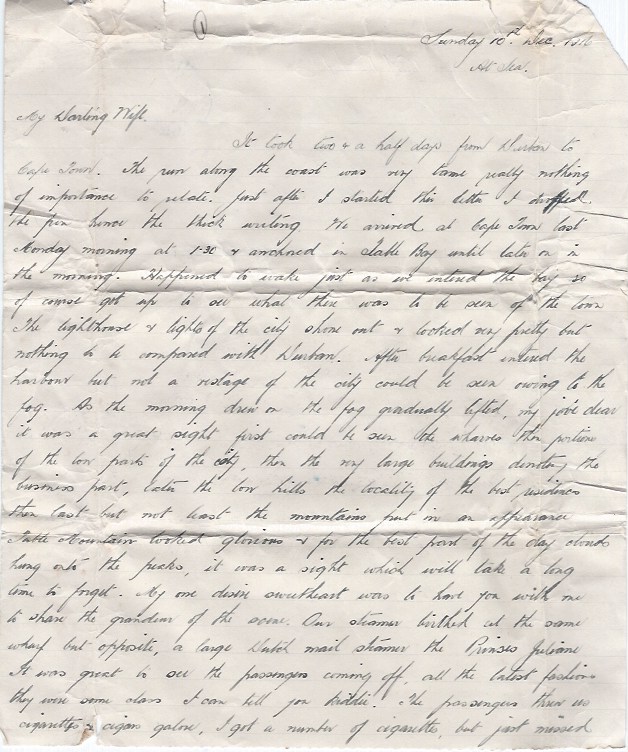 1
Sunday 10th Dec. 1916
At Sea.
My Darling Wife.
It took two & a half days from Durban to
Cape Town. The run along the coast was very tame really nothing
of importance to relate. Just after I started this letter I dropped
the pen hence the thick writing We arrived at Cape Town last
Monday morning at 1-30 & anchored in Table Bay until later on in
the morning. Happened to wake just as we entered the bay so
of course got up to see what there was to be seen of the town
The lighthouse & lights of the city shone out & looked very pretty but
nothing to be compared with Durban. After breakfast entered the
harbour but not a vestage of the city could be seen owing to the
fog. As the morning drew on the fog gradually lifted, my dear
it was a great sight first could be seen the wharves then portions
of the low parts of the city, then the very large buildings denoting the
business part, later the low hills the locality of the best residences
then last but not least the mountains put in an appearance
Table Mountain looked glorious & for the best part of the day clouds
hung onto the peaks, it was a sight which will take a long
time to forget. My one desire sweetheart was to have you with me
to share the grandeur of the scene. Our steamer birthed at the same
wharf but opposite, a large Dutch mail steamer the Prinses Juliane
It was great to see the passengers coming off, all the latest fashions
they were some class I can tell you kiddie. The passengers threw us
cigarettes & cigars galore, I got a number of cigarettes, but just missed